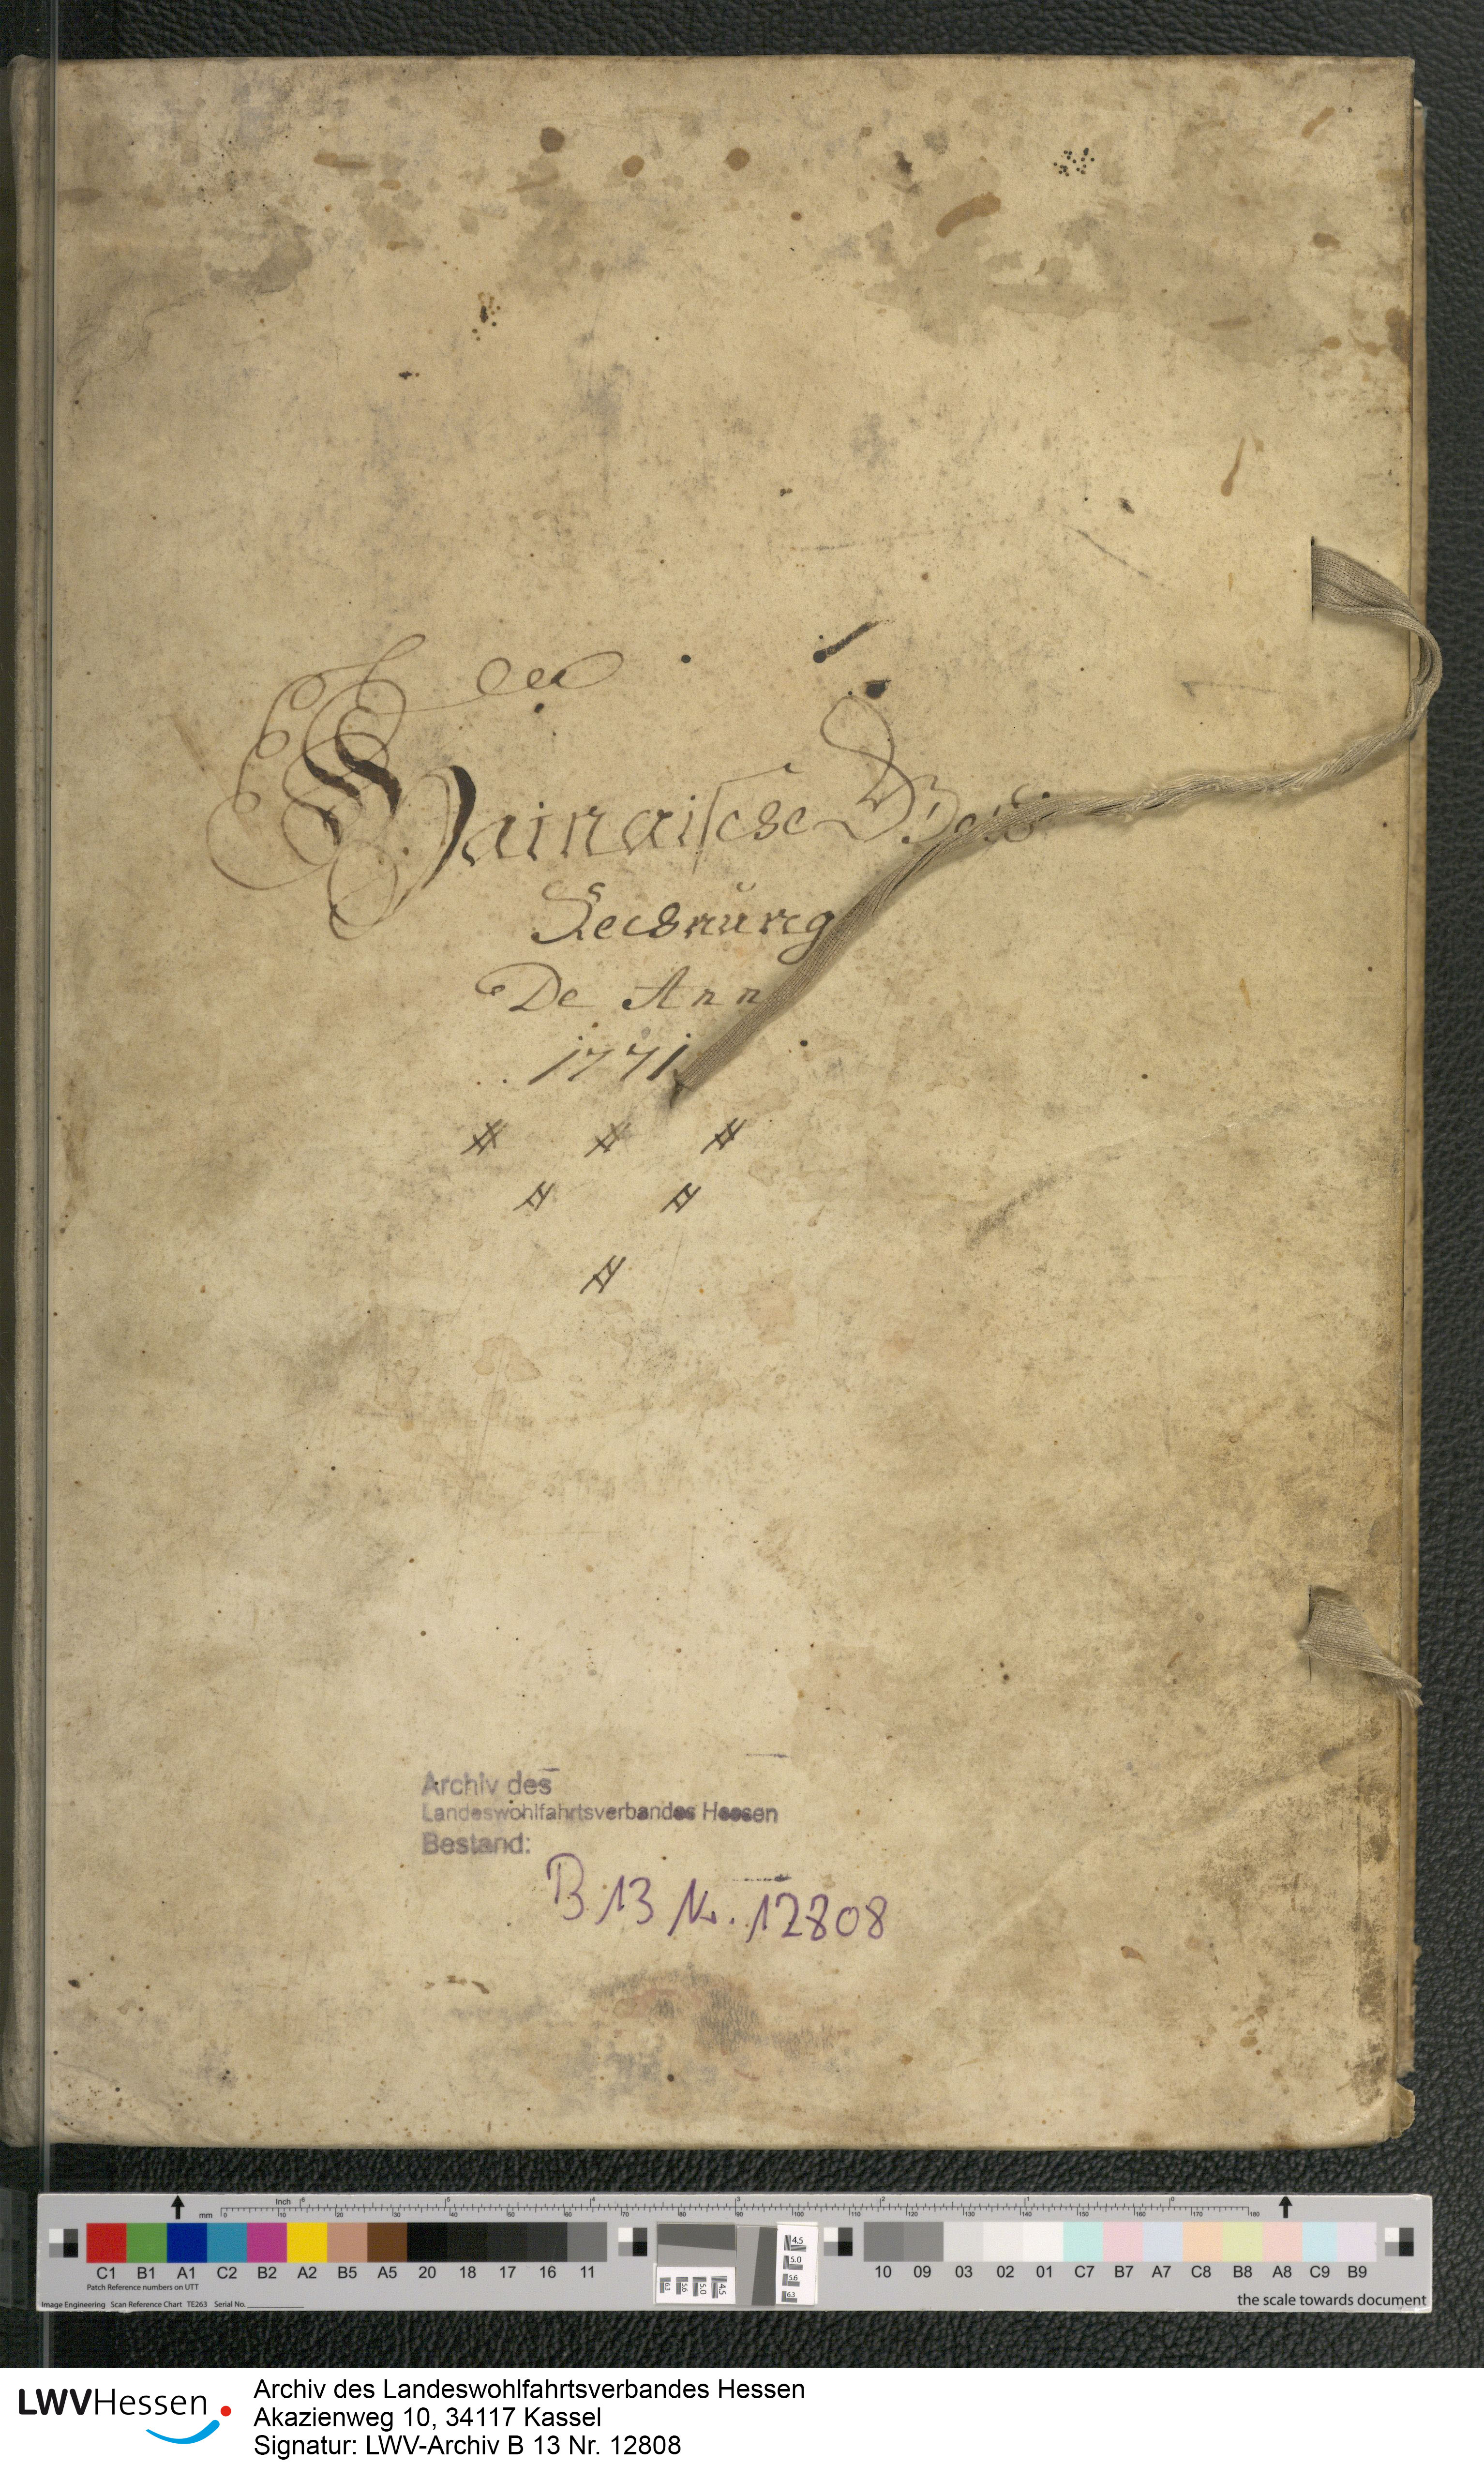 Hainaische
Rechnung
De Ann
1771.
Archiv des
Landeswohlfahrtsverbandes Hessen
Bestand:
B 13 Nr. 12808
Inch
mm
C1 B1 A1 C2 B2 A2 B5 A5 20 18 17 16 11 10 09 03 02 01 C7 B7 A7 C8 B8 A8 C9 B9
Patch Reference numbers on UTT
Image Engineering Scan Reference Chart TE263 Serial No.
the scale towards document
LWVHessen
Archiv des Landeswohlfahrtsverbandes Hessen
Akazienweg 10, 34117 Kassel
Signatur: LWV-Archiv B 13 Nr. 12808